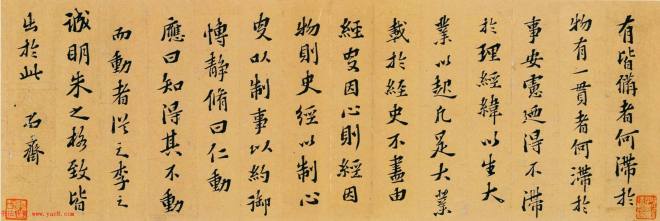 有皆備者何滯於
物有一貫者何滯於
事安憲迺得不滯
於理經緯以生大
業以起凡是大業
載於經史不盡由
經史因心則經因
物則史經以制心
史以制事以約御
博靜脩曰仁動
應曰知得其不動
而動者從之李之
誠明朱之格致皆
出於此 石齋
www.yac8.com